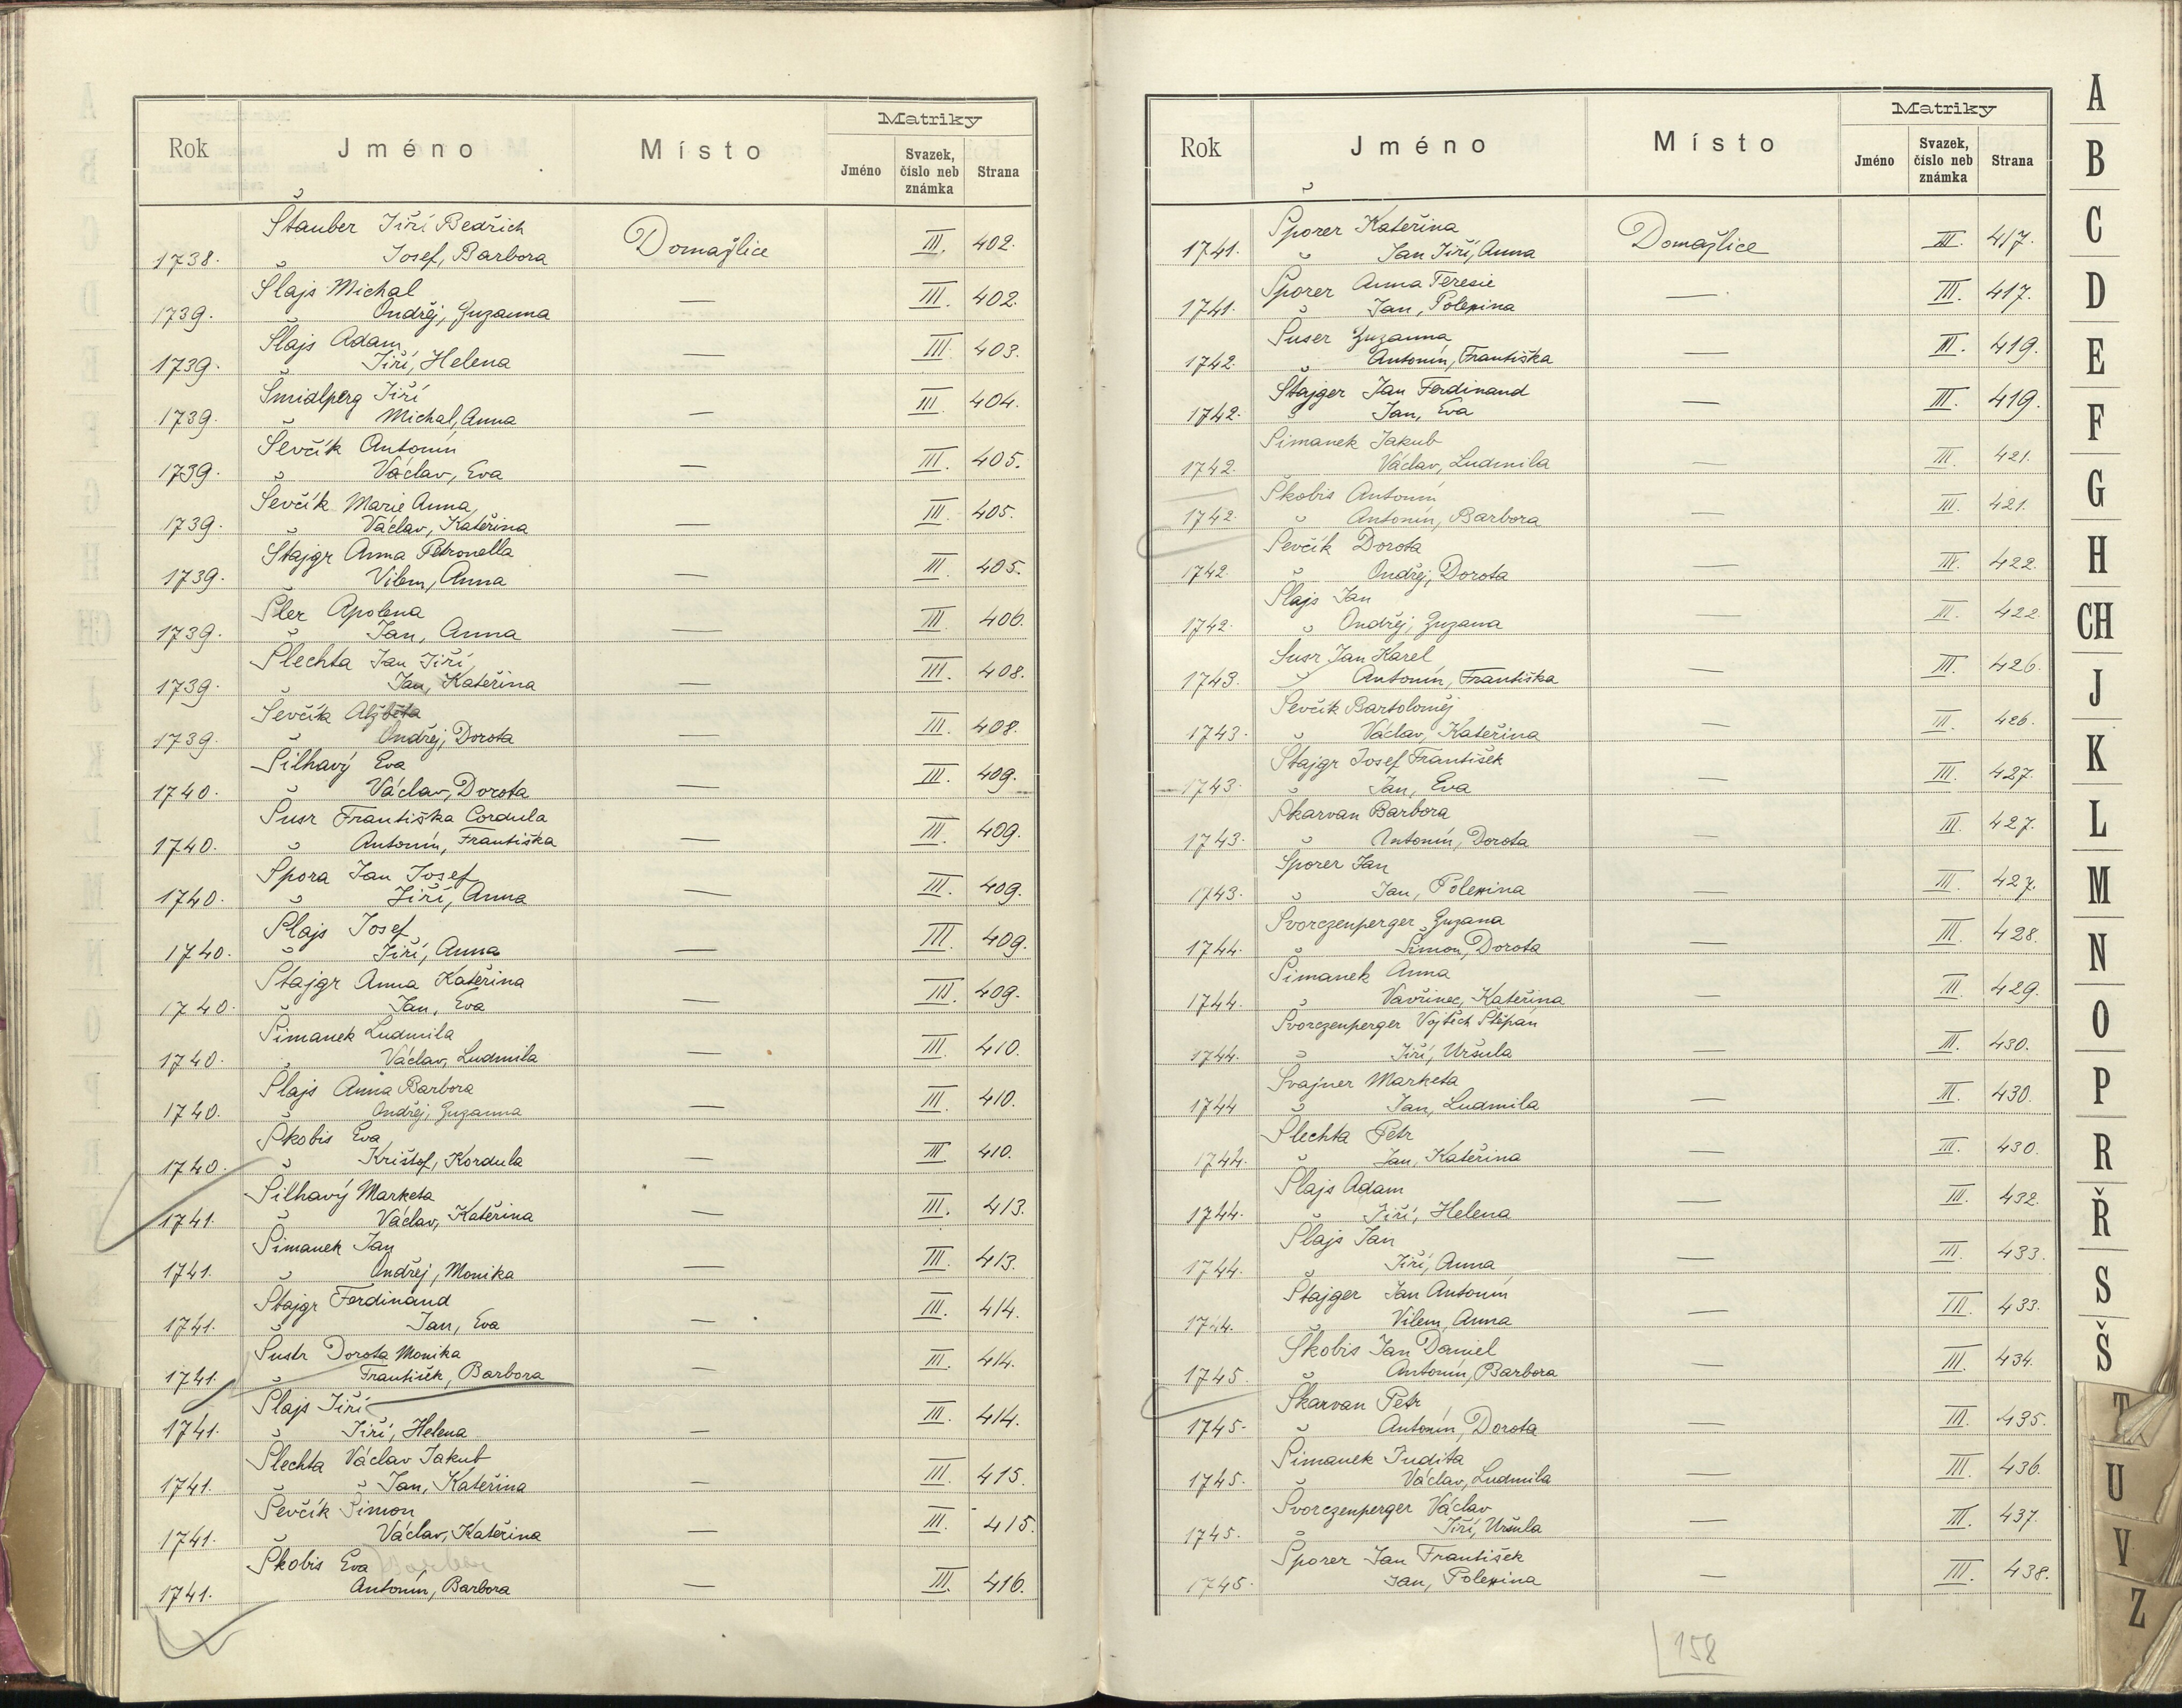 Matriky
Rok Jméno Místo Jméno Svazek, číslo neb známka Strana
Štauber Jiří Bedřich
1738. Josef, Barbora Domažlice III. 402.
Šlajs Michal
1739. Ondřej, Zuzanna — III. 402.
Šlajs Adam
1739. Jiří, Helena — III. 403.
Šmidlperg Jiří
1739. Michal, Anna — III. 404.
Ševčík Antonín
1739. Václav, Eva — III. 405.
Ševčík Marie Anna
1739. Václav, Kateřina — III. 405.
Štajgr Anna Petronella
1739. Vilem, Anna — III. 405.
Šler Apolena
1739. Jan, Anna — III. 406.
Šlechta Jan Jiří
1739. Jan, Kateřina — III. 408.
Ševčík Alžběta
1739. Ondřej, Dorota — III. 408.
Šilhavý Eva
1740. Václav, Dorota — III. 409.
Šusr Františka Cordula
1740. Antonín, Františka — III. 409.
Špora Jan Josef
1740. Jiří, Anna — III. 409.
Šlajs Josef
1740. Jiří, Anna — III. 409.
Štajgr Anna Kateřina
1740. Jan, Eva — III. 409.
Šimanek Ludmila
1740. Václav, Ludmila — III. 410.
Šlajs Anna Barbora
1740. Ondřej, Zuzanna — III. 410.
Škobis Eva
1740. Krištof, Kordula — III. 410.
Šilhavý Marketa
1741. Václav, Kateřina — III. 413.
Šimanek Jan
1741. Ondřej, Monika — III. 413.
Štajgr Ferdinand
1741. Jan, Eva — III. 414.
Šustr Dorota Monika
1741. František, Barbora — III. 414.
Šlajs Jiří
1741. Jiří, Helena — III. 414.
Šlechta Václav Jakub
1741. Jan, Kateřina — III. 415.
Ševčík Šimon
1741. Václav, Kateřina — III. 415.
Škobis Eva
1741. Antonín, Barbora — III. 416.
Matriky
Rok Jméno Místo Jméno Svazek, číslo neb známka Strana
Šporer Kateřina
1741. Jan Jiří, Anna Domažlice III. 417.
Šporer Anna Teresie
1741. Jan, Polexina — III. 417.
Šuser Zuzanna
1742. Antonín, Františka — III. 419.
Štajger Jan Ferdinand
1742. Jan, Eva — III. 419.
Šimanek Jakub
1742. Václav, Ludmila — III. 421.
Škobis Antonín
1742. Antonín, Barbora — III. 421.
Ševčík Dorota
1742. Ondřej, Dorota — III. 422.
Šlajs Jan
1742. Ondřej, Zuzana — III. 422.
Šusr Jan Karel
1743. Antonín, Františka — III. 426.
Ševčík Bartoloměj
1743. Václav, Kateřina — III. 426.
Štajgr Josef František
1743. Jan, Eva — III. 427.
Škarvan Barbora
1743. Antonín, Dorota — III. 427.
Šporer Jan
1743. Jan, Polexina — III. 427.
Švorczenperger Zuzana
1744. Šimon, Dorota — III. 428.
Šimanek Anna
1744. Vavřinec, Kateřina — III. 429.
Švorczenperger Vojtěch Štěpán
1744. Jiří, Uršula — III. 430.
Švajner Marketa
1744 Jan, Ludmila — III. 430.
Šlechta Petr
1744. Jan, Kateřina — III. 430.
Šlajs Adam
1744. Jiří, Helena — III. 432.
Šlajs Jan
1744. Jiří, Anna — III. 433.
Štajger Jan Antonín
1744. Vilem, Anna — III. 433.
Škobis Jan Daniel
1745. Antonín, Barbora — III. 434.
Škarvan Petr
1745. Antonín, Dorota — III. 435.
Šimanek Judita
1745. Václav, Ludmila — III. 436.
Švorczenperger Václav
1745. Jiří, Uršula — III. 437.
Šporer Jan František
1745. Jan, Polexina — III. 438.
158
A
B
C
D
E
F
G
H
CH
J
K
L
M
N
O
P
R
Ř
S
Š
T
U
V
Z